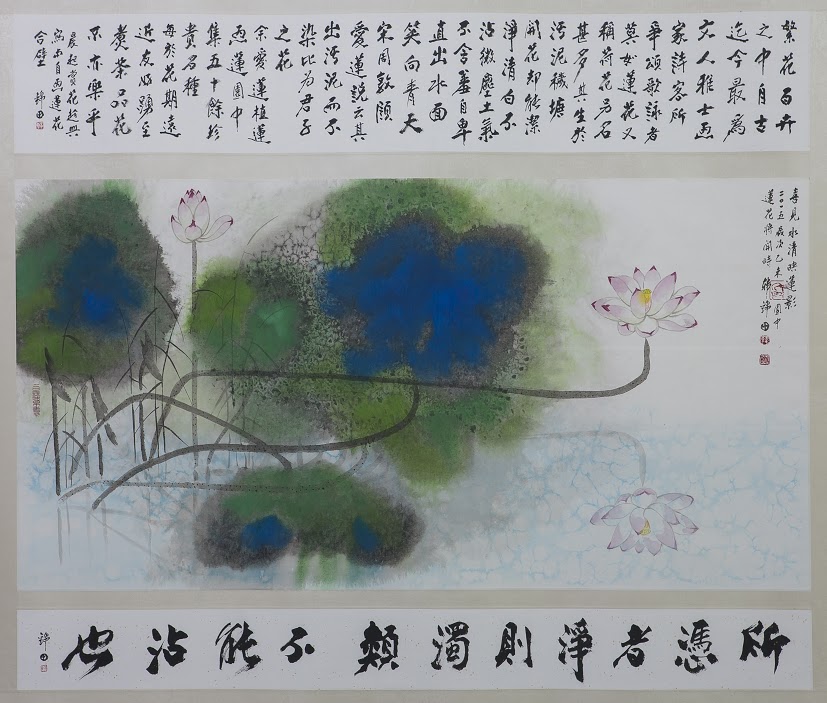 繁花百卉
之中自古
迄今最爲
文人雅士画
家詩客所
爭頌歌詠者
莫如蓮花又
稱荷花名
甚多其生於
污泥穢塘
開花却能潔
淨清白不
沾微塵土氣
不含羞自卑
直出水面
笑向青天
宋周敦頤
愛蓮説云其
出污泥而不
染比为君子
之花
余愛蓮植蓮
蓮園中
集五十餘珍
貴名種
每於花期遠
近友好踴至
賞茶品花
不亦樂乎
晨起賞花趁興
自画蓮花
合壁
喜見水清映蓮影
歲次乙未園中
蓮花將開時
所憑者淨則濁類不能沾也